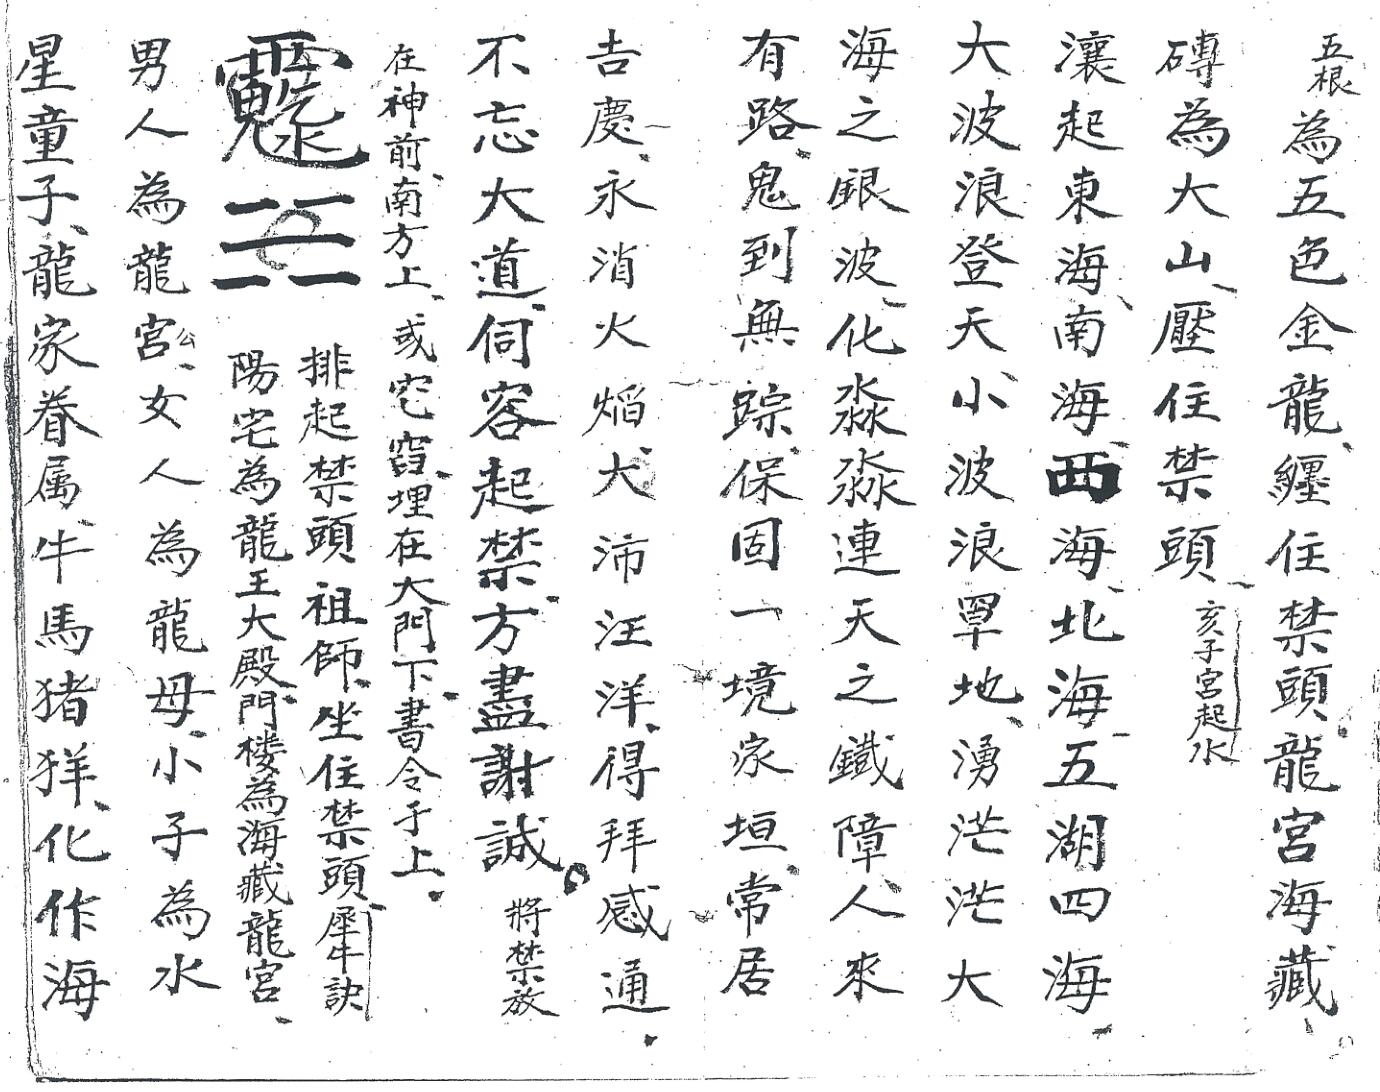 五根為五色金龍、纏住禁頭、龍宮海藏、
磚為大山、壓住禁頭、亥子宮起水
瀼起東海、南海、西海、北海、五湖四海、
大波浪登天、小波浪罩地、湧茫茫大
海之銀波、化淼淼連天之鐵障、人來
有路、鬼到無踪、保固一境家垣、常居
吉慶、永消火焰、大沛汪洋、得拜感通、
不忘大道、伺容起禁方盡謝誠。將禁放
在神前、南方上、或宅窟、埋在大門下、書令于上、
排起禁頭祖師、坐住禁頭、犀牛訣
陽宅為龍王大殿、門楼為海藏龍宮、
男人為龍宮公、女人為龍母、小子為水
星童子、龍家眷属、牛馬猪羊、化作海